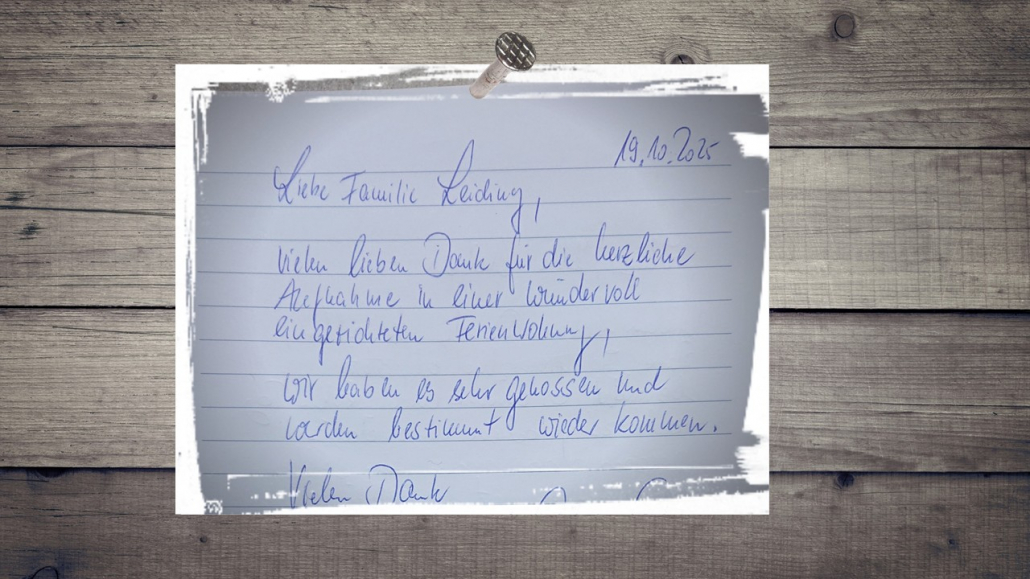 19.10.2025
Liebe Familie Leiding,
Vielen lieben Dank für die herzliche
Aufnahme in einer wundervoll
eingerichteten Ferienwohnung,
wir haben es sehr genossen und
werden bestimmt wieder kommen.
Vielen Dank